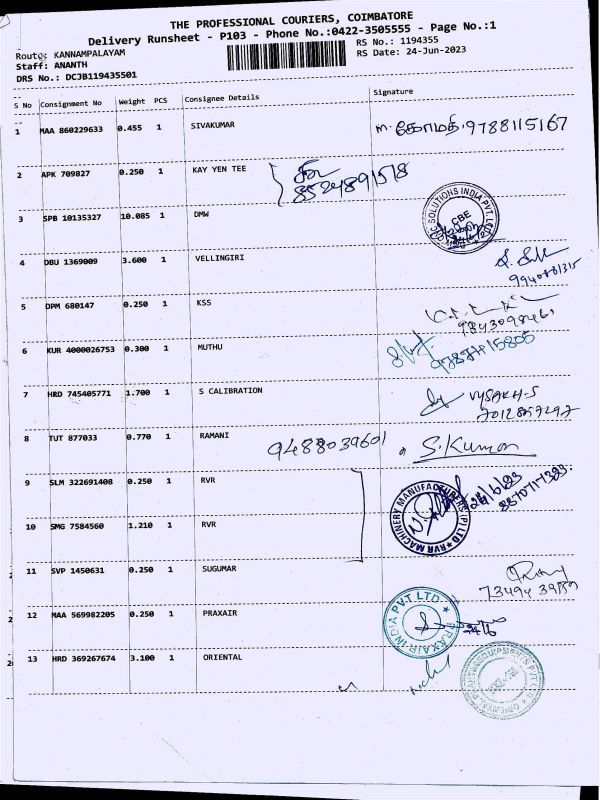 THE PROFESSIONAL COURIERS, COIMBATORE
Delivery Runsheet - P103 - Phone No.:0422-3505555 - Page No.:1
Route: KANNAMPALAYAM
RS No.: 1194355
Staff: ANANTH
RS Date: 24-Jun-2023
DRS No.: DCJB119435501
S No Consignment No Weight PCS Consignee Details Signature
1 MAA 860229633 0.455 1 SIVAKUMAR m. கோமதி. 9788115167
2 APK 709827 0.250 1 KAY YEN TEE
3 SPB 10135327 10.085 1 DMW SOLUTIONS INDIA PVT. LTD CBE
4 DBU 1369009 3.600 1 VELLINGIRI
5 DPM 680147 0.250 1 KSS
6 KUR 4000026753 0.300 1 MUTHU
7 HRD 745405771 1.700 1 S CALIBRATION VYSAKH-S
8 TUT 877033 0.770 1 RAMANI 9488039601 S.Kumar
9 SLM 322691408 0.250 1 RVR
10 SMG 7584560 1.210 1 RVR RVR MACHINERY MANUFACTURERS (P) LTD 24/6/23
11 SVP 1450631 0.250 1 SUGUMAR
12 MAA 569982205 0.250 1 PRAXAIR PRAXAIR INDIA PVT. LTD
13 HRD 369267674 3.100 1 ORIENTAL